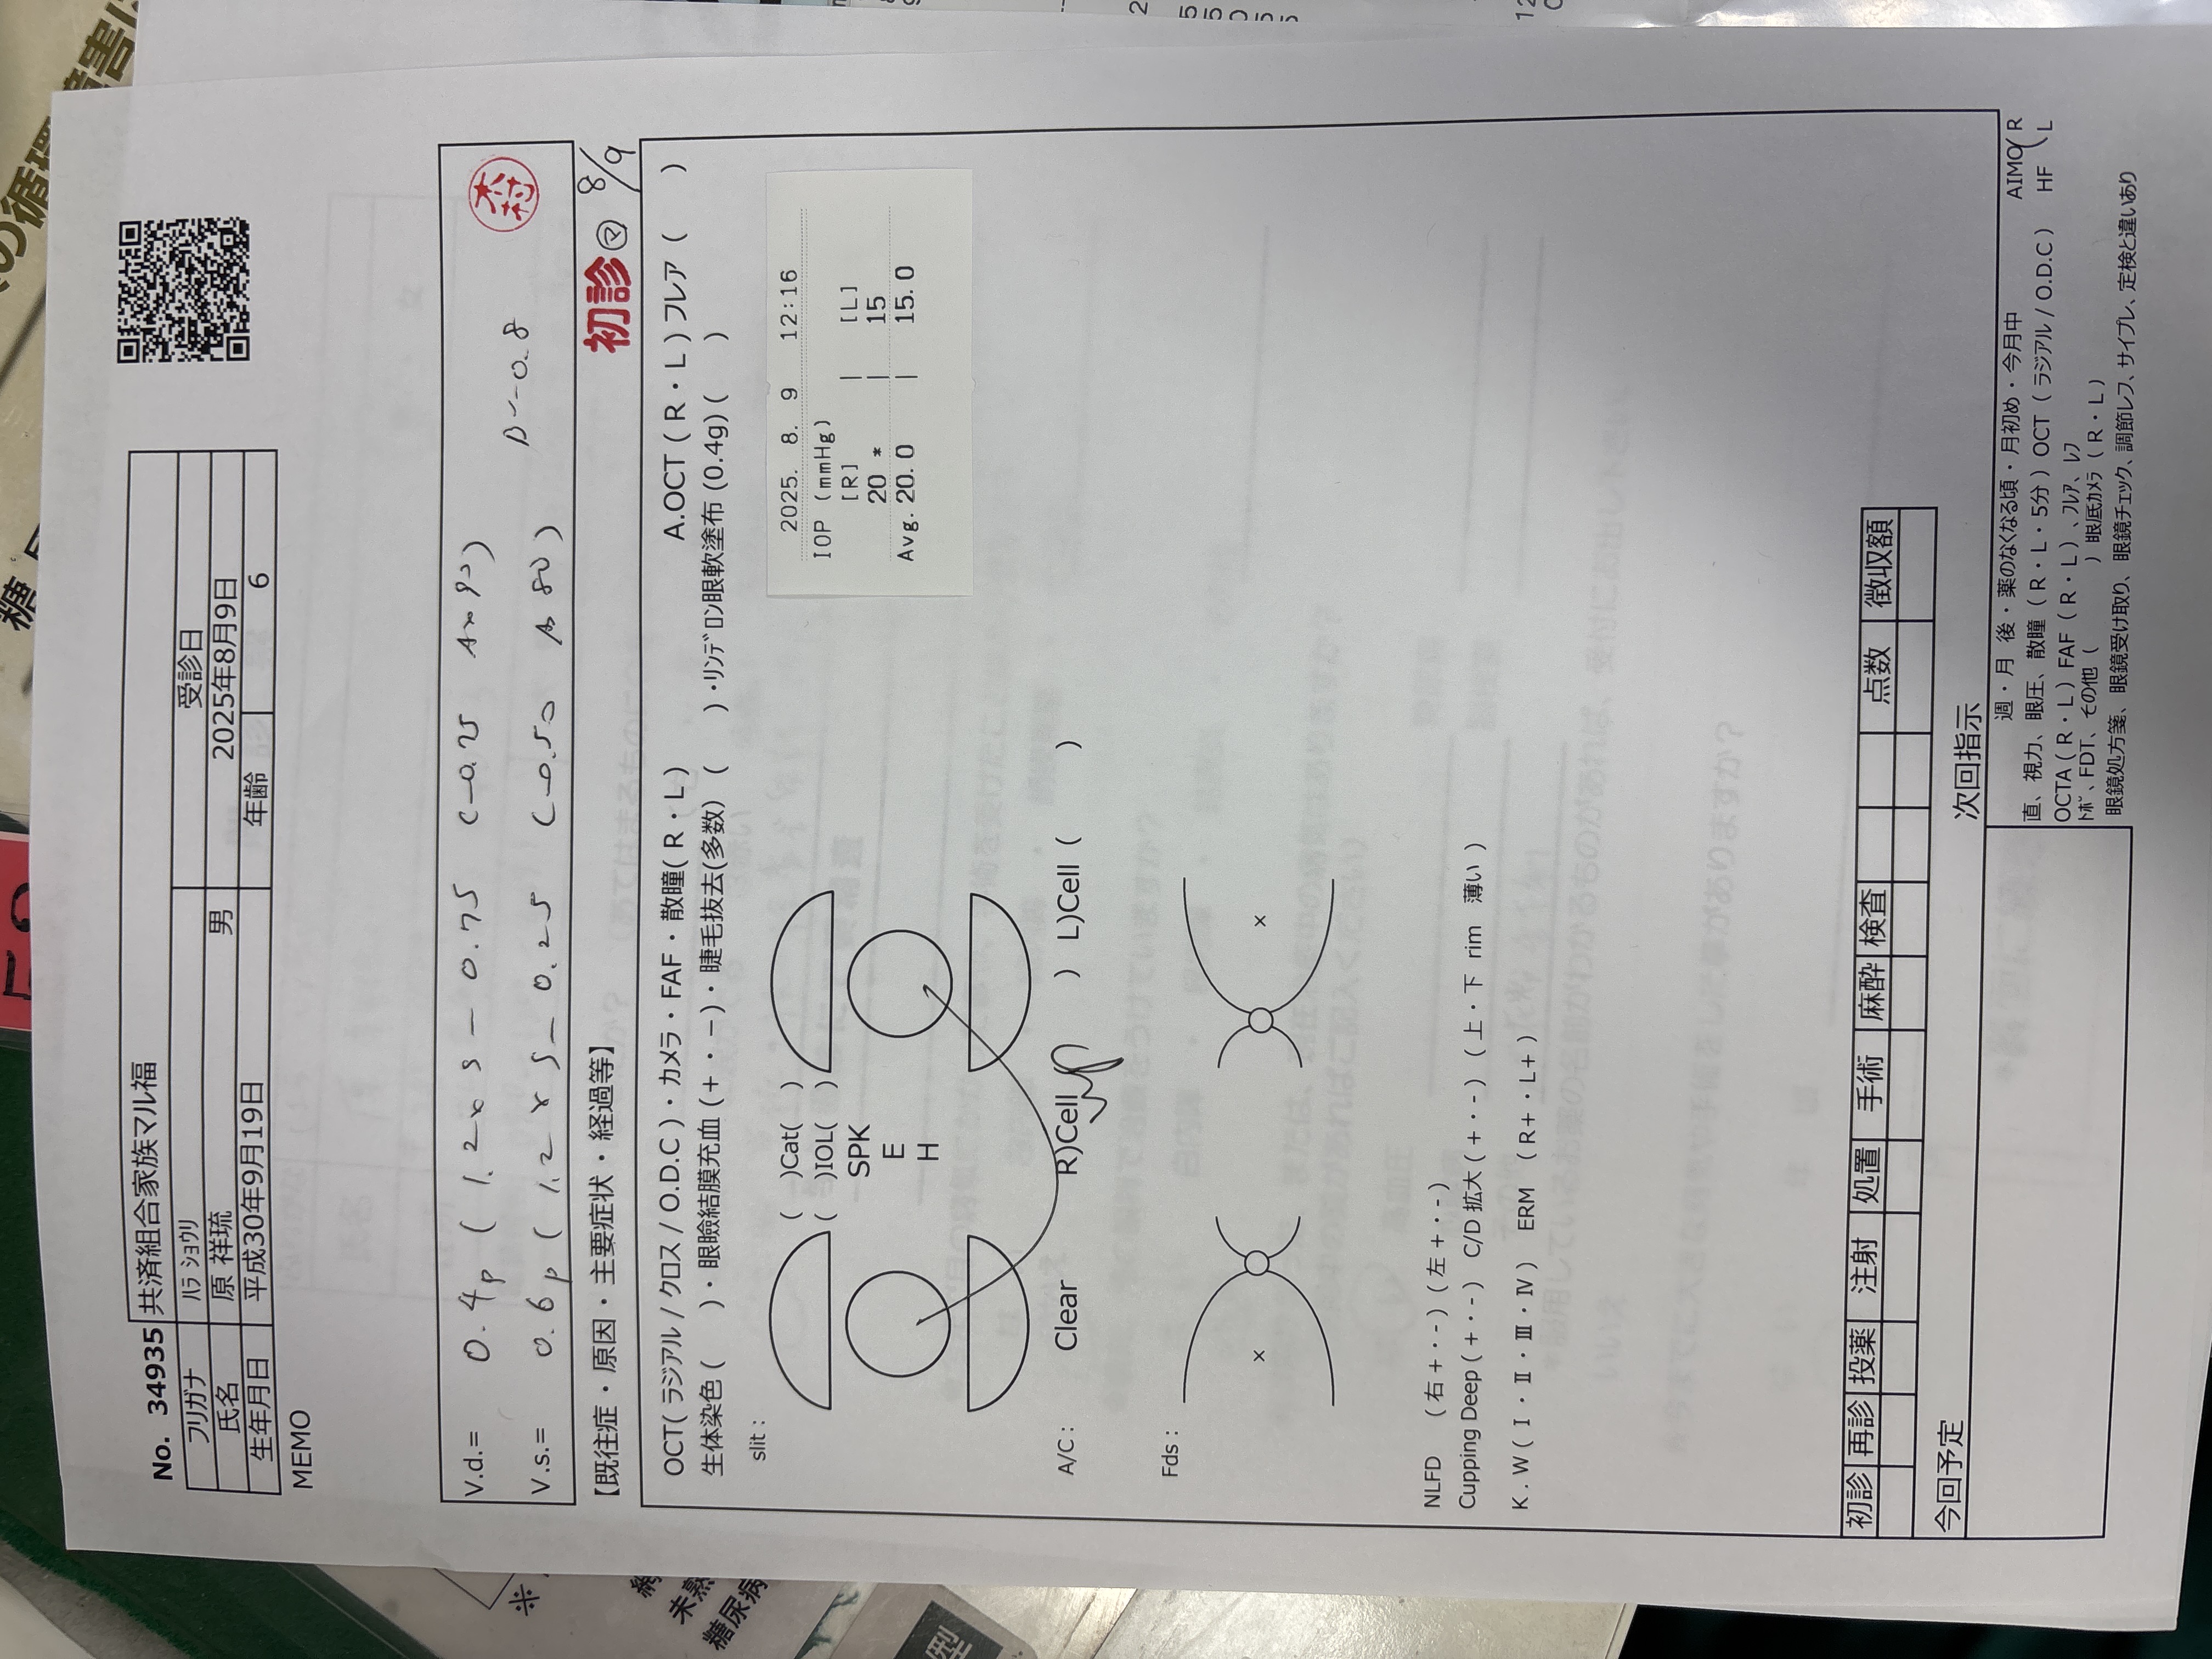 糖尿
の循環
障害に
No. 34935 共済組合家族マル福
フリガナ ﾊﾗ ｼｮｳﾘ 受診日
氏名 原 祥琉 男 2025年8月9日
生年月日 平成30年9月19日 年齢 6
MEMO
V.d.= 0.4p ( 1.2 x S - 0.75 C-0.75 Ax 90 )
V.s.= 0.6p ( 1.2 x S - 0.25 C-0.50 A 80 )
-0.8
木村
【既往症・原因・主要症状・経過等】 初診 マ 8/9
OCT( ラジアル / クロス / O.D.C )・カメラ・FAF・散瞳( R・L ) A.OCT ( R・L ) フレア ( )
生体染色 ( )・眼瞼結膜充血 (+・−)・睫毛抜去(多数) ( )・ﾘﾝﾃﾞﾛﾝ眼軟塗布 (0.4g) ( )
slit :
( )Cat( )
( )IOL( )
SPK
E
H
2025. 8. 9 12:16
IOP (mmHg)
[R] | [L]
20 * | 15
Avg. 20.0 | 15.0
A/C : Clear R)Cell ) L)Cell ( )
Fds :
× ×
NLFD ( 右 +・- ) ( 左 +・- )
Cupping Deep ( +・- ) C/D 拡大 ( +・- ) ( 上・下 rim 薄い )
K . W ( Ⅰ・Ⅱ・Ⅲ・Ⅳ ) ERM ( R+・L+ )
初診 再診 投薬 注射 処置 手術 麻酔 検査 点数 徴収額
今回予定
次回指示
週・月 後・薬のなくなる頃・月初め・今月中 AIMO R
直、視力、眼圧、散瞳 ( R・L・5分 ) OCT ( ラジアル / O.D.C ) HF L
OCTA ( R・L ) FAF ( R・L ) 、ﾌﾚｱ、ﾚﾌ
ﾄﾎﾟ、FDT、その他 ( ) 眼底ｶﾒﾗ ( R・L )
眼鏡処方箋、眼鏡受け取り、眼鏡チェック、調節レフ、サイプレ、定検と違いあり
未熟
糖尿病
型